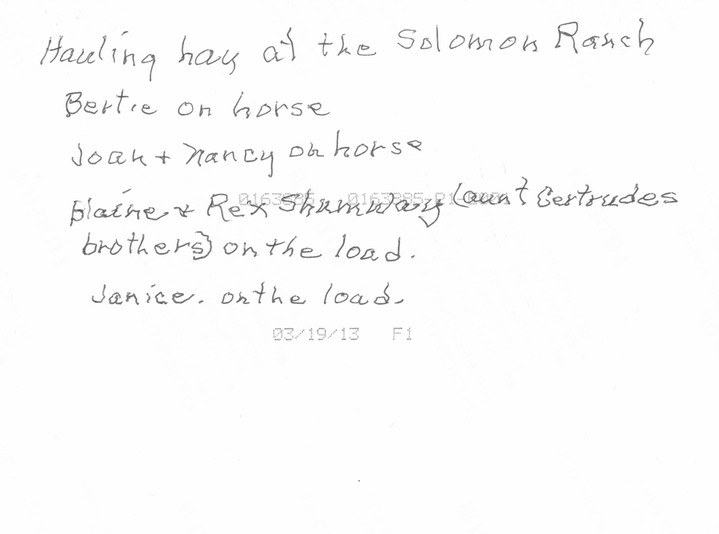 Hauling hay at the Solomon Ranch
Bertie on horse
Joan + Nancy on horse
Blaine & Rex Shumway (aunt Gertrudes
brothers) on the load.
Janice. on the load.
03/19/13 F1